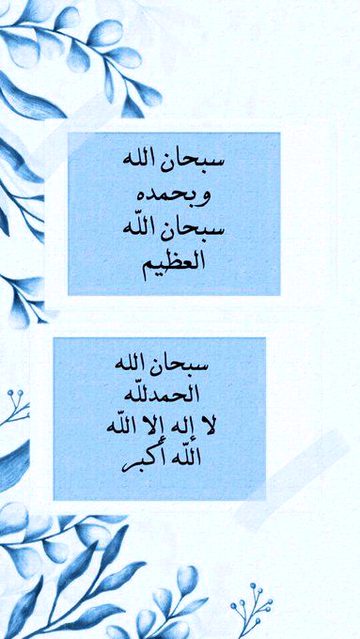 سبحان الله
وبحمده
سبحان اللّه
العظيم
سبحان الله
الحمدللّه
لا إله إلا اللّه
اللّه أكبر